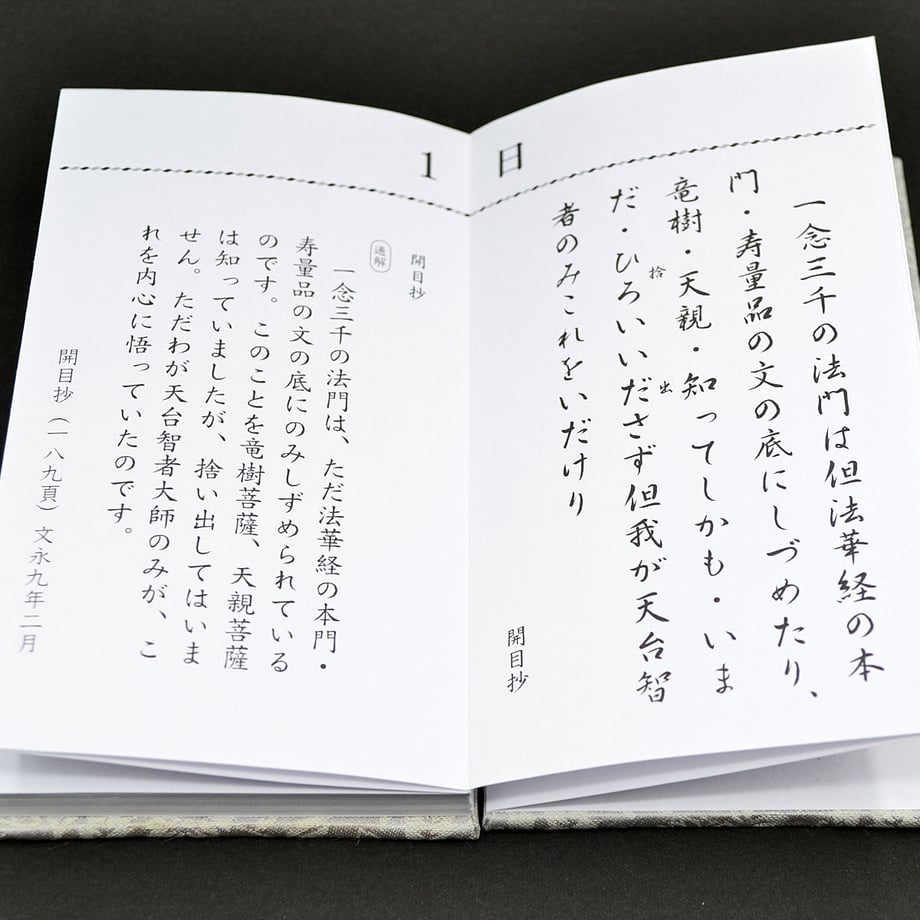 日
一念三千の法門は但法華経の本
門・寿量品の文の底にしづめたり、
竜樹・天親・知ってしかも・いま
だ・ひろいいださず但我が天台智
捨
出
者のみこれをいだけり
開目抄
1
開目抄
通解
一念三千の法門は、ただ法華経の本門・
寿量品の文の底にのみしずめられている
のです。このことを竜樹菩薩、天親菩薩
は知っていましたが、捨い出してはいま
せん。ただわが天台智者大師のみが、こ
れを内心に悟っていたのです。
開目抄（一八九頁）文永九年二月